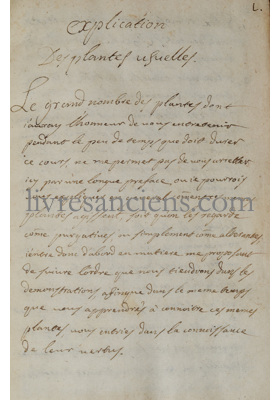 1.
Explication
Des plantes usuelles.
Le grand nombre des plantes dont
j'auray l'honneur de vous entretenir
pendant le peu de temps que doit durer
ce cours, ne me permet pas de vous arretter
icy par une longue preface, ou je pourrois
livresanciens.com
plantes agissent, soit quon les regarde
come purgatives ou simplement come alterantes
jentre donc d'abord en matiere me proposant
de suivre lordre que nous tiendrons dans les
demonstrations, afin que dans le meme temps
que vous apprendrés a connoitre ces memes
plantes vous entriés dans la connoissance
de leur vertus.